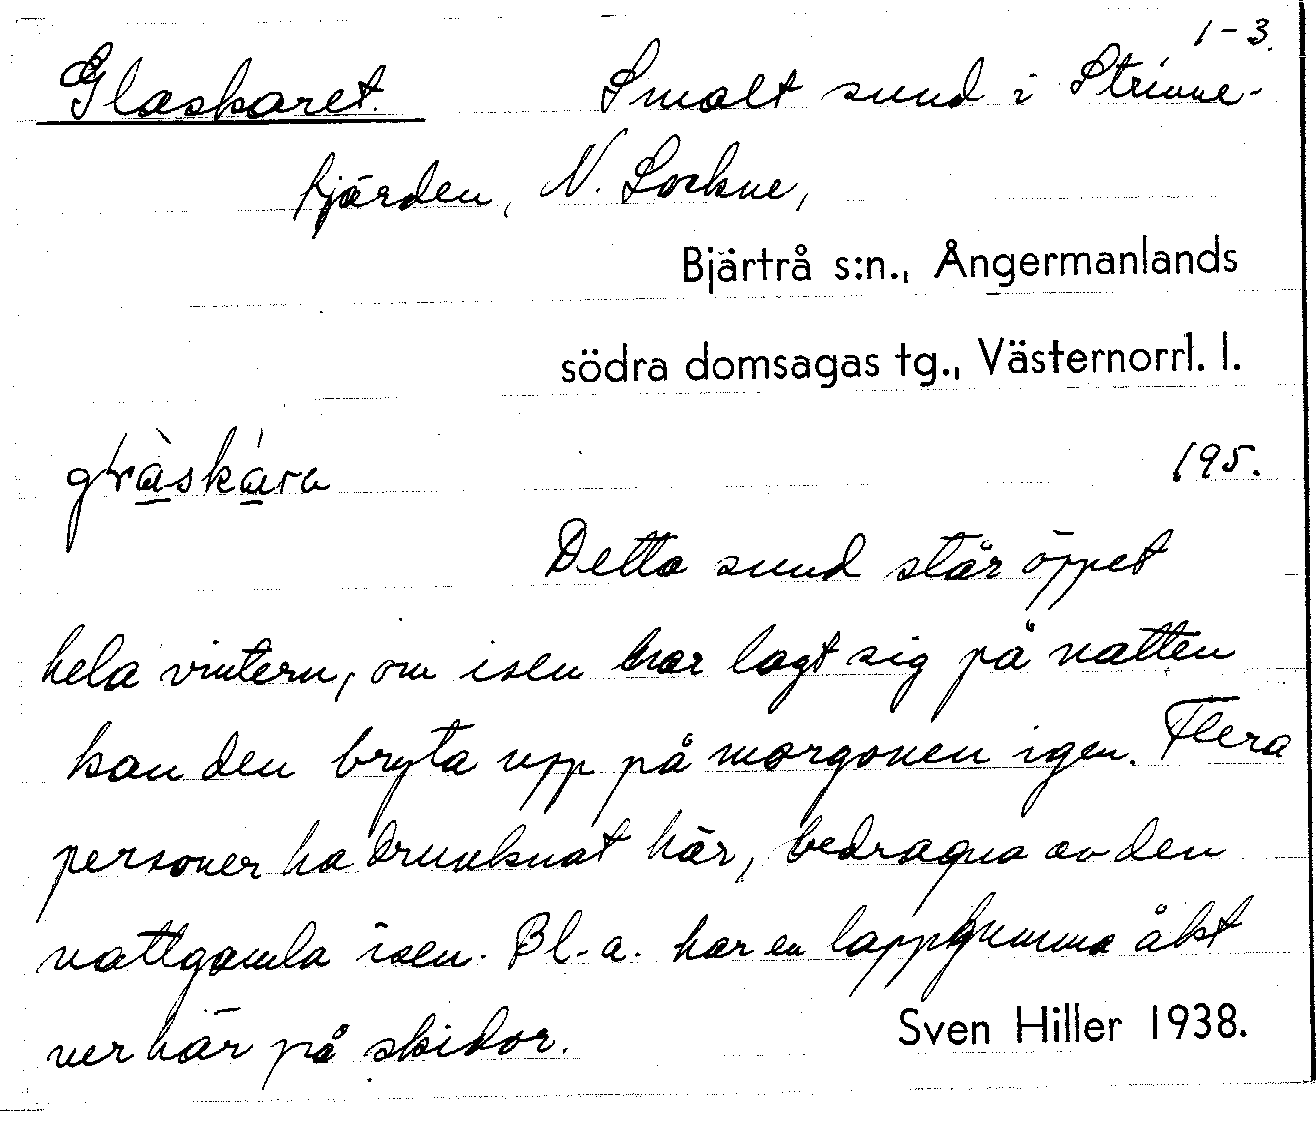 1-3.
Glaskaret. Smalt sund i Strinne-
fjärden, N. Lockne,
Bjärtrå s:n., Ångermanlands
södra domsagas tg., Västernorrl. l.
195.
Detta sund står öppet
hela vintern, om isen har lagt sig på natten
kan den bryta upp på morgonen igen. Flera
personer ha drunknat här, bedragna av den
nattgamla isen. Bl. a. har en lappgumma åkt
ner här på skidor.
Sven Hiller 1938.